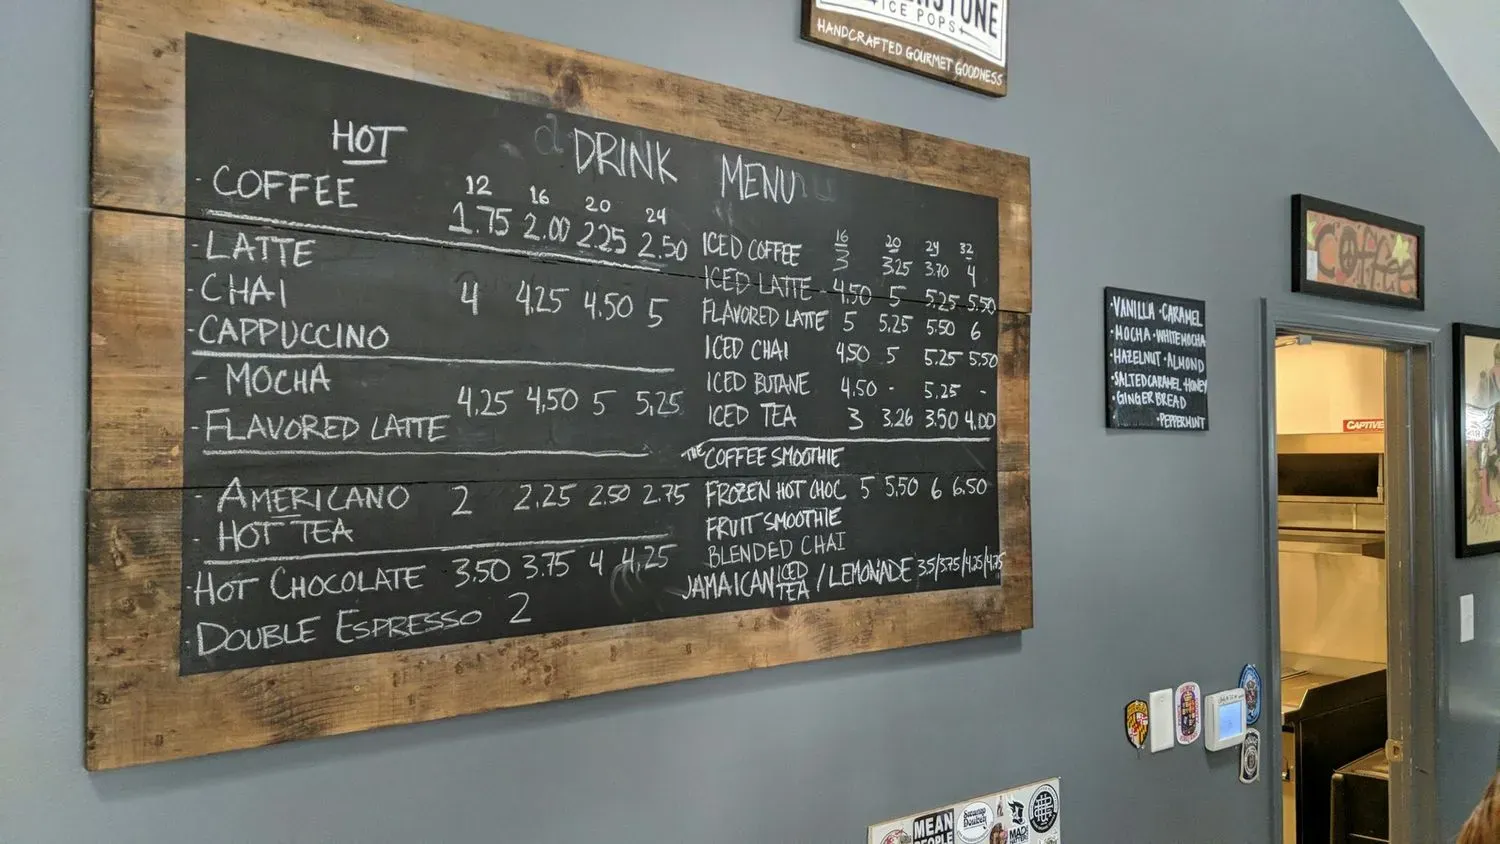 STONE
ICE POPS
HANDCRAFTED GOURMET GOODNESS
DRINK MENU
HOT
12 16 20 24
· COFFEE 1.75 2.00 2.25 2.50
· LATTE
· CHAI 4 4.25 4.50 5
· CAPPUCCINO
- MOCHA 4.25 4.50 5 5.25
· FLAVORED LATTE
· AMERICANO 2 2.25 2.50 2.75
· HOT TEA
· HOT CHOCOLATE 3.50 3.75 4 4.25
· DOUBLE ESPRESSO 2
16 20 24 32
ICED COFFEE 3 3.25 3.70 4
ICED LATTE 4.50 5 5.25 5.50
FLAVORED LATTE 5 5.25 5.50 6
ICED CHAI 4.50 5 5.25 5.50
ICED BUTANE 4.50 - 5.25 -
ICED TEA 3 3.26 3.50 4.00
THE COFFEE SMOOTHIE
FROZEN HOT CHOC 5 5.50 6 6.50
FRUIT SMOOTHIE
BLENDED CHAI
JAMAICAN ICED TEA / LEMONADE 3.5/3.75/4.25/4.75
· VANILLA · CARAMEL
· MOCHA · WHITE MOCHA
· HAZELNUT · ALMOND
· SALTED CARAMEL · HONEY
· GINGERBREAD
· PEPPERMINT
COFFEE
CAPTIVE
MEAN
PEOPLE